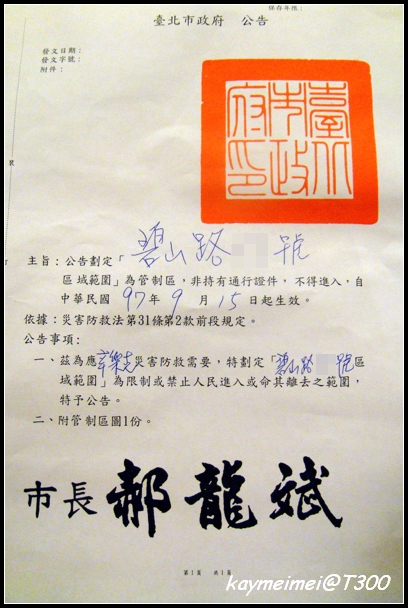 保存年限：
臺北市政府　公告
發文日期：
發文字號：
附件：
臺北市政府印
號
主旨：公告劃定「碧山路 號
區域範圍」為管制區，非持有通行證件，不得進入，自
中華民國97年9月15日起生效。
依據：災害防救法第31條第2款前段規定。
公告事項：
一、茲為應辛樂克災害防救需要，特劃定「碧山路 號區
域範圍」為限制或禁止人民進入或命其離去之範圍，
特予公告。
二、附管制區圖1份。
市長 郝龍斌
第1頁　共1頁
kaymeimei@T300